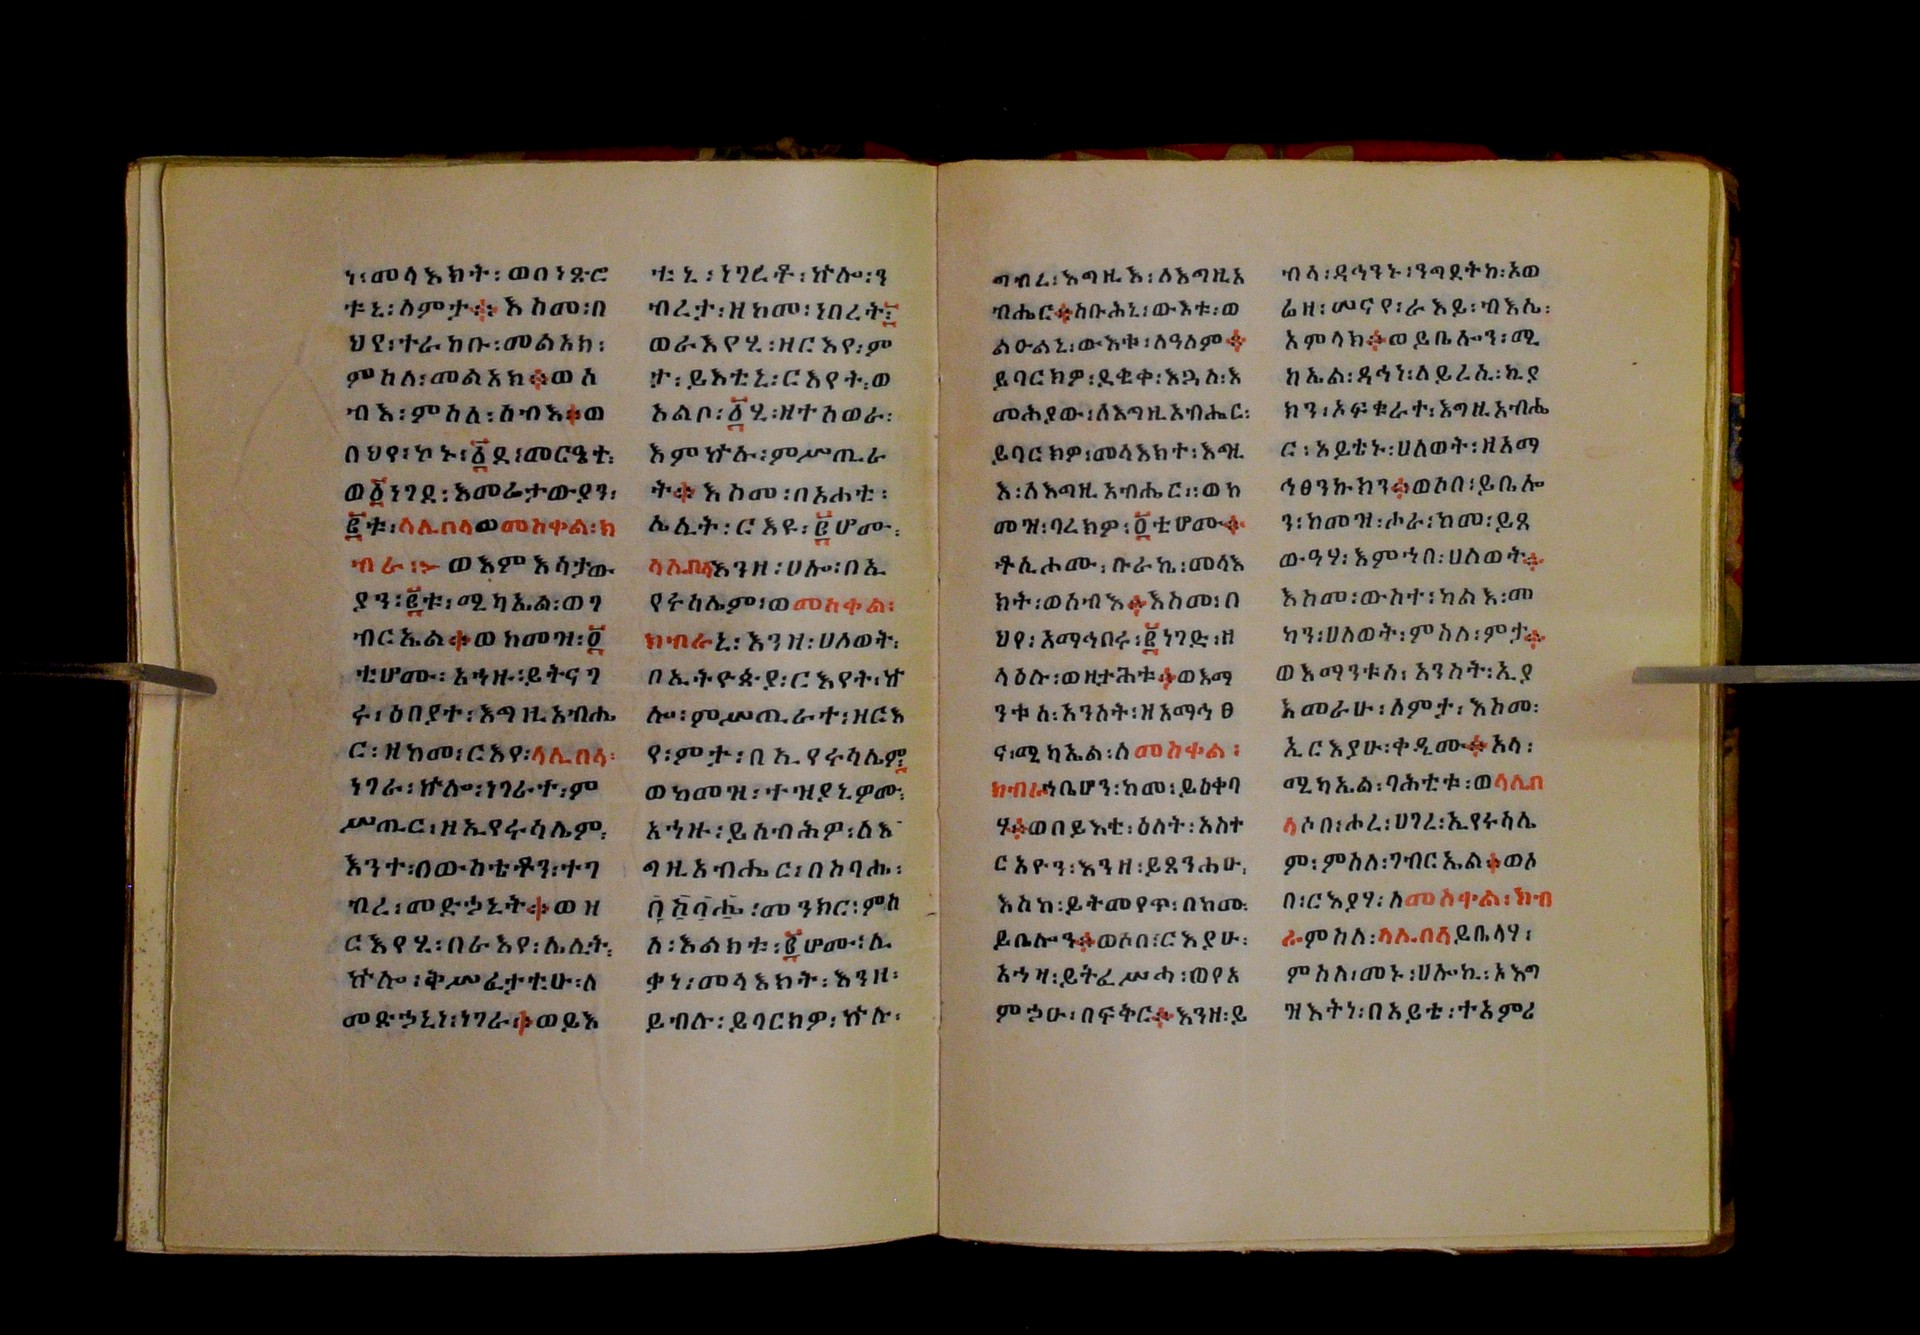 ነ፡መላእክት፡ወበነጽሮ
ቱኒ፡ለምታ፨እስመ፡በ
ህየ፡ተራከቡ፡መልአክ፡
ምስለ፡መልአክ፨ወስ
ብእ፡ምስለ፡ሰብእ፨ወ
በህየ፡ኮኑ፡፩ደ፡መርዔተ፡
ወ፩ነገደ፡እመሬታውያን፡
፪ቱ፡ላሊበላወመስቀል፡ክ
ብራ፡፡ወእምእሳታው
ያን፡፪ቱ፡ሚካኤል፡ወገ
ብርኤል፨ወከመዝ፡፬
ቲሆሙ፡አኀዙ፡ይትናገ
ሩ፡ዕበያተ፡እግዚአብሔ
ር፡ዘከመ፡ርእየ፡ላሊበላ፡
ነገራ፡ኵሎ፡ነገራተ፡ም
ሥጢር፡ዘኢየሩሳሌም፡
እንተ፡በውስቴቶን፡ተገ
ብረ፡መድኃኒት፨ወዘ
ርእየሂ፡በራእየ፡ሌሊት፡
ኵሎ፡ቅሥፈታቲሁ፡ለ
መድኃኒነ፡ነገራ፨ወይእ
ቲኒ፡ነገረቶ፡ኵሎ፡ን
ብረታ፡ዘከመ፡ነበረት፡
ወራእየሂ፡ዘርእየ፡ም
ታ፡ይእቲኒ፡ርእየት፡ወ
አልቦ፡፩ሂ፡ዘተሰወራ፡
እምኵሉ፡ምሥጢራ
ት፨እስመ፡በአሐቲ፡
ሌሊት፡ርእዩ፡፪ሆሙ፡
ላሊበላእንዘ፡ሀሎ፡በኢ
የሩሳሌም፡ወመስቀል፡
ክብራኒ፡እንዘ፡ሀለወት፡
በኢትዮጵያ፡ርእየት፡ኵ
ሎ፡ምሥጢራተ፡ዝርእ
የ፡ምታ፡በኢየሩሳሌም፡
ወከመዝ፡ተዝያኒዎሙ፡
አኀዙ፡ይሰብሕዎ፡ለእ
ግዚአብሔር፡በስባሔ፡
በስባሔ፡መንክር፡ምስ
ለ፡እልክቱ፡፪ሆሙ፡ሊ
ቃነ፡መላእክት፡እንዘ፡
ይብሉ፡ይባርክዎ፡ኵሉ፡
ግብረ፡እግዚእ፡ለእግዚአ
ብሔር፨ስቡሕኒ፡ውእቱ፡ወ
ልዑልኒ፡ውእቱ፡ለዓለም፨
ይባርክዎ፡ደቂቀ፡እጓለ፡እ
መሕያው፡ለእግዚአብሔር፡
ይባርክዎ፡መላእክተ፡እግዚ
እ፡ለእግዚአብሔር፡፡ወከ
መዝ፡ባረክዎ፡፬ቲሆሙ፨
ቶሲሐሙ፡ቡራኬ፡መላእ
ክት፡ወሰብእ፨እስመ፡በ
ህየ፡አማኅበሩ፡፪ነገድ፡ዘ
ላዕሉ፡ወዘታሕቱ፨ወእማ
ንቱ፡ስ፡አንስት፡ዘአማኅፀ
ና፡ሚካኤል፡ለመስቀል፡
ክብራኀቤሆን፡ከመ፡ይዕቀባ
ሃ፨ወበይእቲ፡ዕለት፡አስተ
ርአዮን፡እንዘ፡ይጸንሐሁ፡
እስከ፡ይትመየጥ፡በከሙ፡
ይቤሎን፨ወሶበ፡ርእያሁ፡
አኀዛ፡ይትፈሥሓ፡ወየአ
ምኃሁ፡በፍቅር፨እንዘ፡ይ
ብላ፡ዳኅንኑ፡ንግደትከ፡ኦወ
ሬዘ፡ሠናየ፡ራእይ፡ብእሴ፡
አምላክ፨ወይቤሎን፡ሚ
ካኤል፡ዳኅነ፡ለይረሲ፡ኪያ
ክን፡ኦፍቁራተ፡እግዚአብሔ
ር፡አይቴኑ፡ሀለወት፡ዘአማ
ኅፀንኩክን፨ወሶበ፡ይቤሎ
ን፡ከመዝ፡ሖራ፡ከመ፡ይጸ
ውዓሃ፡እምኀበ፡ሀለወት፨
እስመ፡ውስተ፡ካልእ፡መ
ካን፡ሀለወት፡ምስለ፡ምታ፨
ወእማንቱስ፡አንስት፡ኢያ
አመራሁ፡ለምታ፡እስመ፡
ኢርእያሁ፡ቀዲሙ፨አላ፡
ሚካኤል፡ባሕቲቱ፡ወላሊበ
ላሶበ፡ሖረ፡ሀገረ፡ኢየሩሳሌ
ም፡ምስለ፡ገብርኤል፨ወሶ
በ፡ርእያሃ፡ለመስቀል፡ክብ
ራምስለ፡ላሊበላይቤላሃ፡
ምስለ፡መኑ፡ሀሎኪ፡ኦእግ
ዝእትነ፡በአይቴ፡ተአምሪ